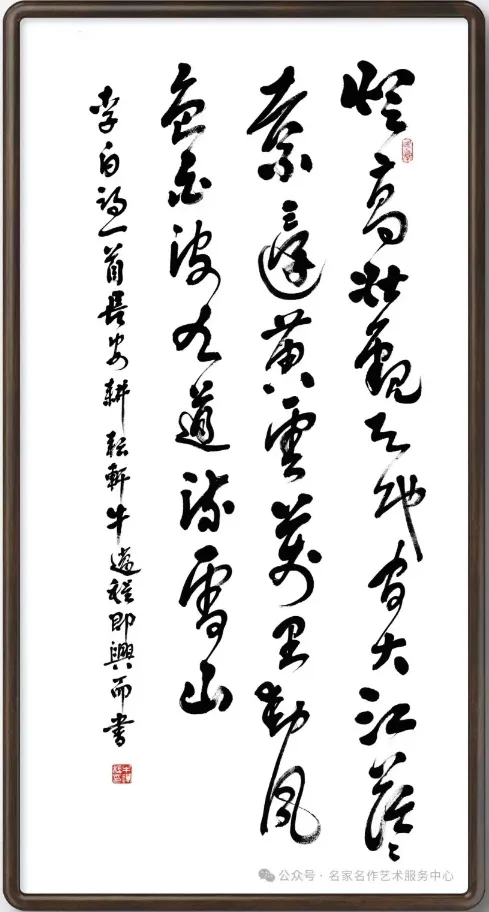 登高壮觀天地间大江茫々
去不還黄雲萬里動風
色白波九道流雪山
李白诗一首長安耕耘軒牛程即興而書
公众号·名家名作艺术服务中心